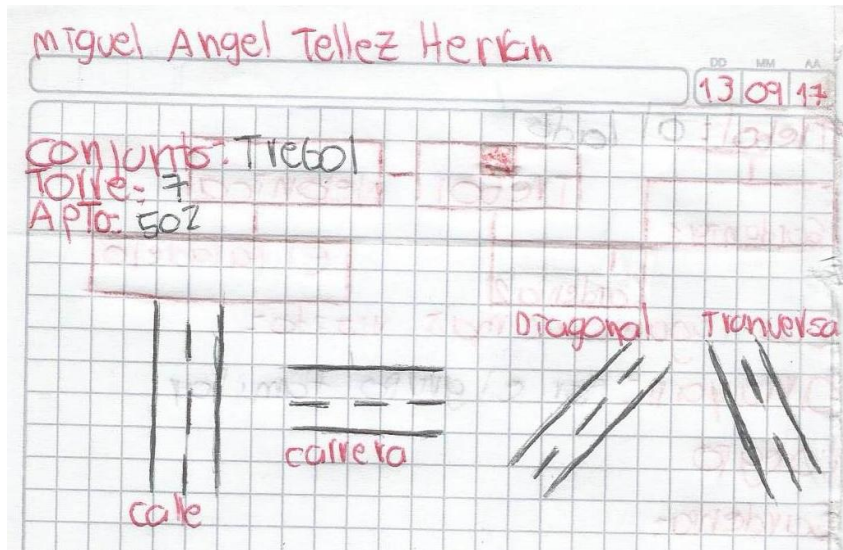 Miguel Angel Tellez Hernan
DD MM AA
13 09 17
Conjunto: Trebol
Torre: 7
Apto: 502
Diagonal Tranversa
carrera
calle